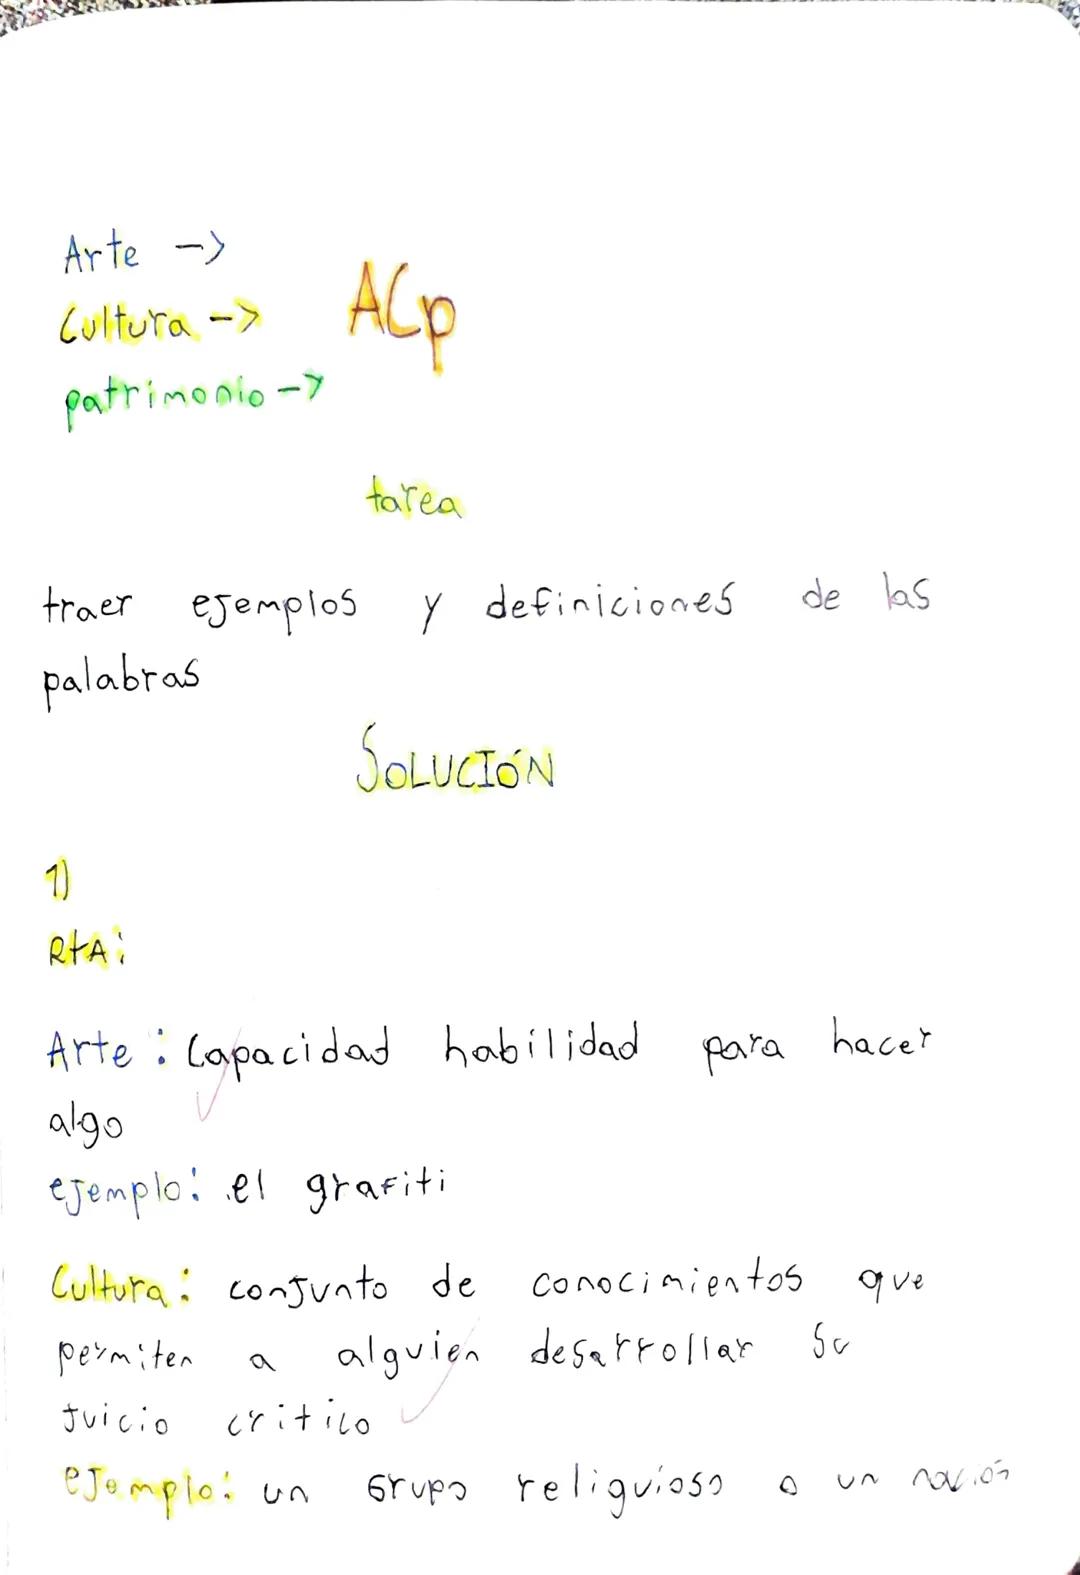 Arte ->
Cultura -> ACp
patrimonio ->
tarea
traer ejemplos y definiciones de las
palabras
SOLUCIÓN
1)
RtA:
Arte: Capacidad habilidad para hacer
algo
ejemplo: el grafiti
Cultura: conjunto de conocimientos que
permiten a alguien desarrollar su
juicio critico
ejemplo: un Grupo religuioso o un nación